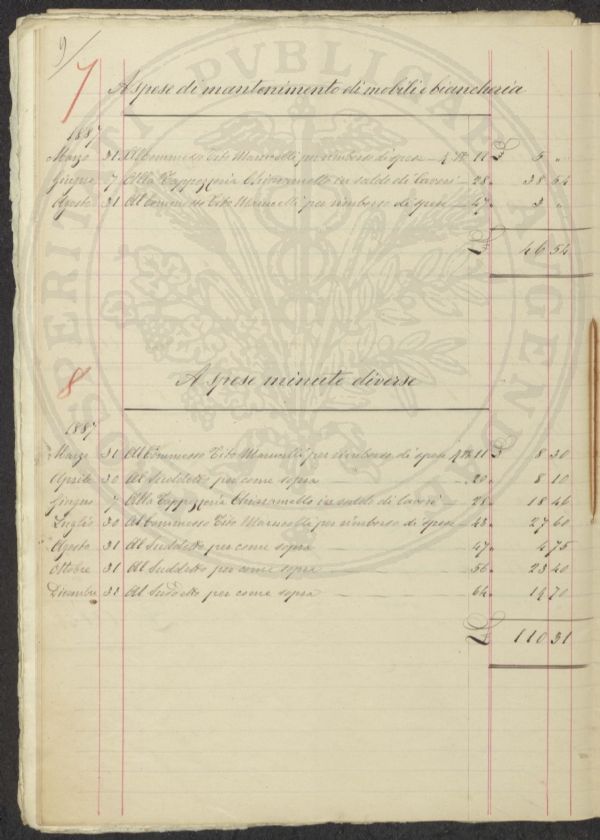 9/
7 A spese di mantenimento di mobili e biancheria
1887
Marzo 31 Al Commesso Tito Marucelli per rimborso di spese 11 £ 5 "
Giugno 7 Alla Tappezzeria Chiaramello in saldo di lavori 28 38 54
Agosto 31 Al Commesso Tito Marucelli per rimborso di spese 47 3 "
£ 46 54
8 A spese minute diverse
1887
Marzo 31 Al Commesso Tito Marucelli per rimborso di spese 11 £ 8 30
Aprile 30 Al Suddetto per come sopra 20 8 10
Giugno 7 Alla Tappezzeria Chiaramello in saldo di lavori 28 18 46
Luglio 30 Al Commesso Tito Marucelli per rimborso di spese 43 27 60
Agosto 31 Al Suddetto per come sopra 47 4 75
Ottobre 31 Al Suddetto per come sopra 56 23 40
Dicembre 31 Al Suddetto per come sopra 64 19 70
£ 110 31
PVBLICAE AVGENDAE PROSPERITATI